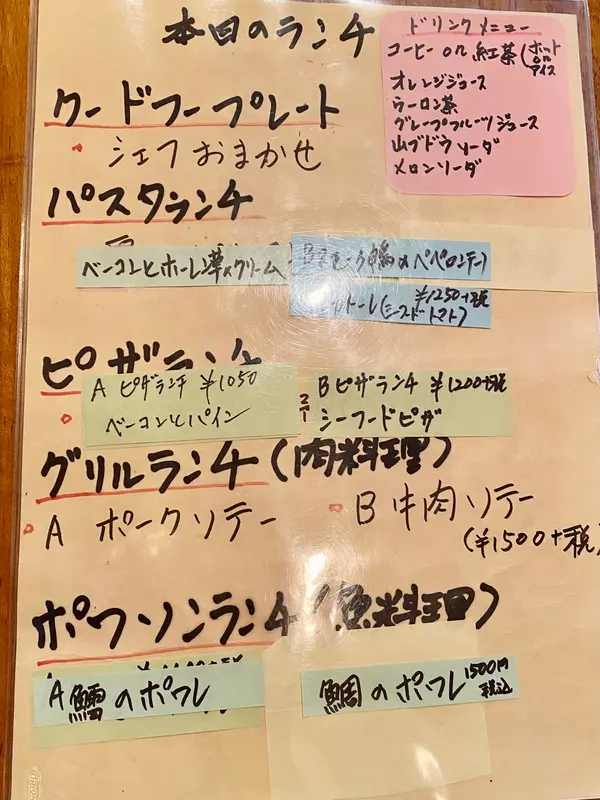 本日のランチ
ドリンクメニュー
コーヒー or 紅茶 (ホット or アイス
オレンジジュース
ウーロン茶
グレープフルーツジュース
山ブドウソーダ
メロンソーダ
クードフープレート
シェフおまかせ
パスタランチ
ベーコンとホーレン草のクリーム
のペペロンチーノ
¥1250+税
ピザランチ
A ピザランチ ¥1050
ベーコンとパイン
B ピザランチ ¥1200+税
シーフードピザ
グリルランチ (肉料理)
A ポークソテー
B 牛肉ソテー
(¥1500+税)
ポワソンランチ (魚料理)
A 鱈のポワレ
鯛のポワレ 1500円税込